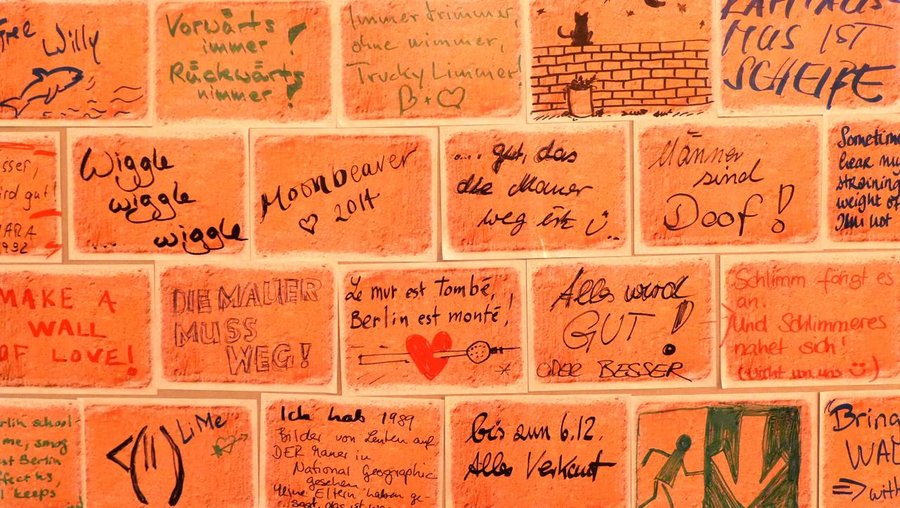 Free
Willy
Vorwärts
immer
Rückwärts
nimmer!
Immer trimmer,
ohne wimmer,
Trucky Limmer!
B+♡
KAPITALIS-
MUS IST
SCHEIßE
sser,
ird gut!
ARA
1992
Wiggle
wiggle
wiggle
Moonbeaver
♡ 2014
... gut, das
die Mauer
weg ist
Männer
sind
Doof!
Sometime
hear my
straining
weight of
I'm not
MAKE A
WALL
OF LOVE!
DIE MAUER
MUSS
WEG!
Le mur est Tombé,
Berlin est monté!
Alles wird
GUT!
ODER BESSER
Schlimm fängt es
an.
Und Schlimmeres
nahet sich!
(Nicht von uns ☺)
erlin school
me, song
st Berlin
ffect ks,
l keeps
LiMe
Ich hab 1989
Bilder von Leuten auf
DER Mauer in
National Geographic
gesehen
Meine Eltern haben ge-
sagt, das ist
bis zum 6.12.
Alles Verkauft
Bring
WAL
⇒ with